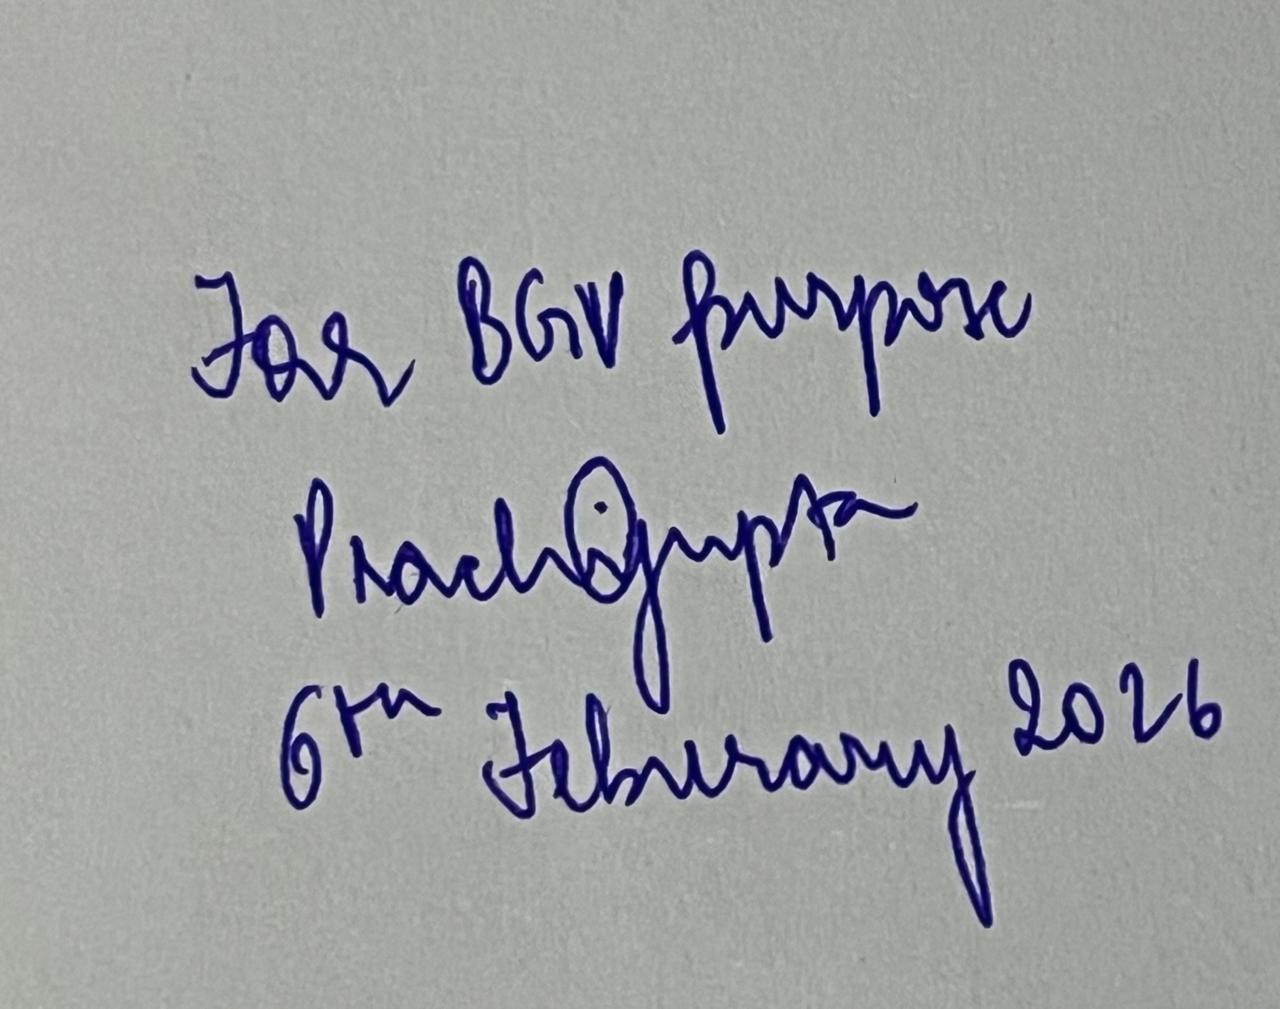 For BGV purpose
Prachi Gupta
6th Feburary 2026